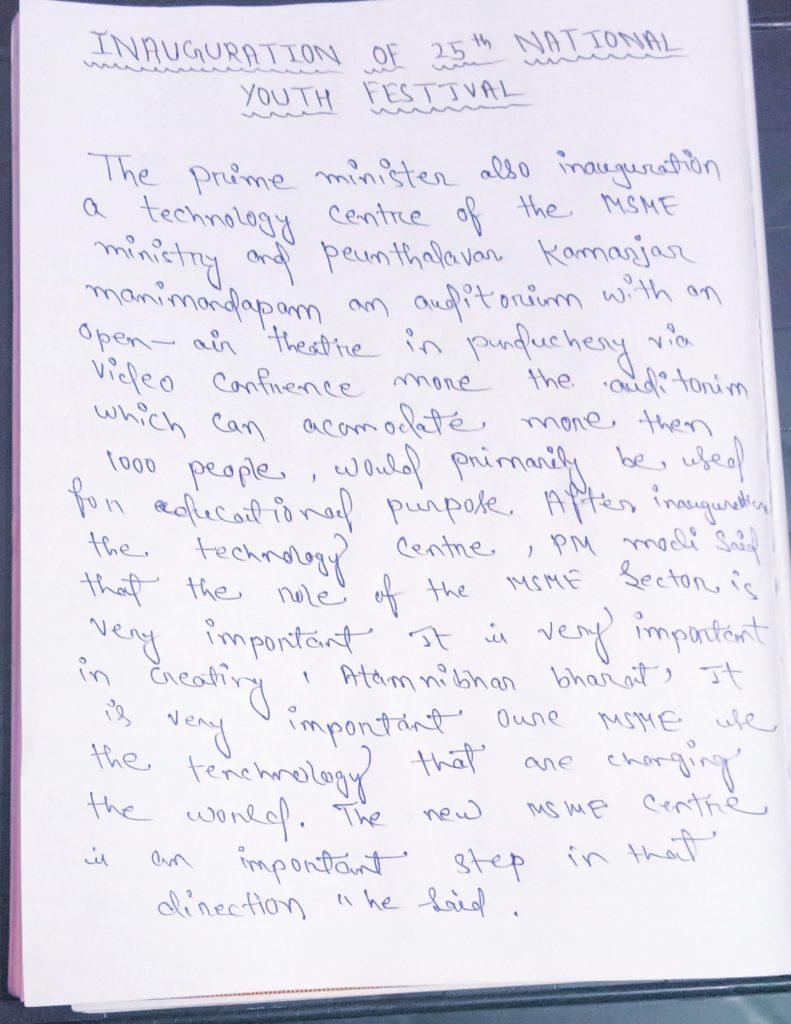 INAUGURATION OF 25th NATIONAL
YOUTH FESTIVAL
The prime minister also inauguration
a technology centre of the MSME
ministry and peunthalavar Kamarjar
manimandapam an auditorium with an
open-air theatre in puducherry via
video confrence more the auditorim
which can acamodate more then
1000 people, would primarily be used
for educational purpose. After inauguration
the technology centre, PM modi said
that the role of the MSME Sector is
very important It is very important
in creating ' Atamnibhar bharat' It
is very important oure MSME use
the tenchnology that are changing
the world. The new MSME centre
is an important step in that
direction " he said.